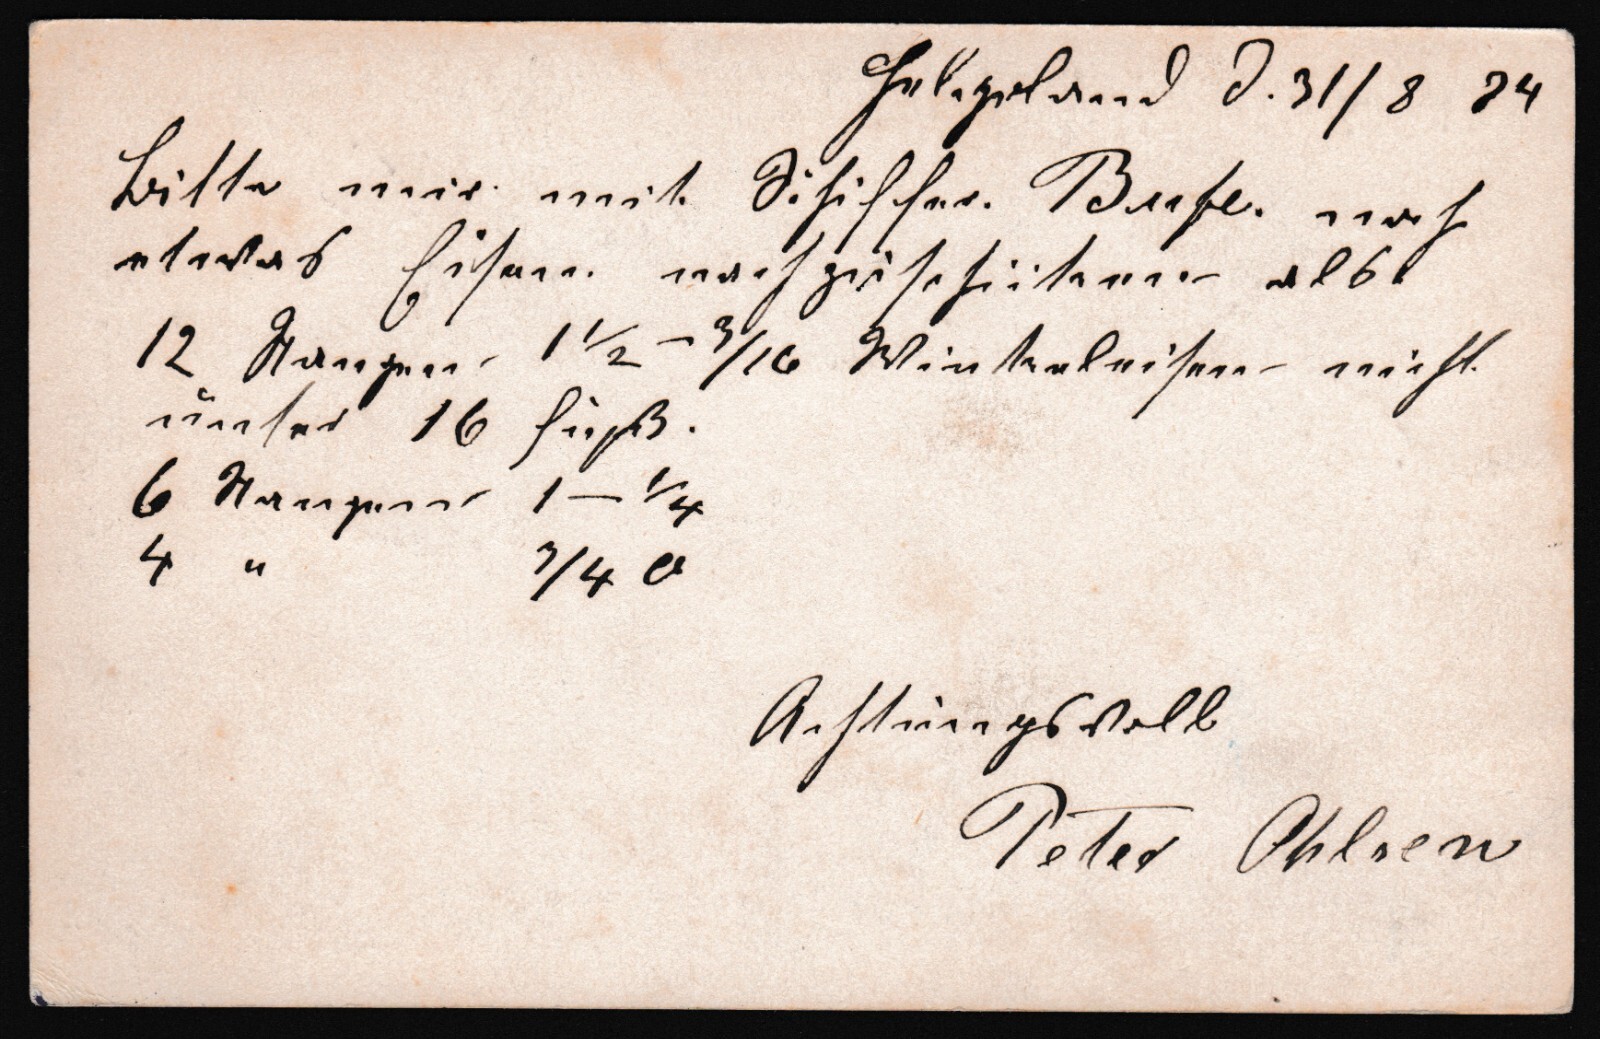 Helgoland d. 31/8 84
Bitte mir mit Schiffer noch
etwas Eisen nachzuschicken als
12 Stangen 1 1/2 – 3/16 Winkeleisen nicht
unter 16 Fuß.
6 Stangen 1 – 1/4
4 " 3/4
Achtungsvoll
Peter Ohlsen